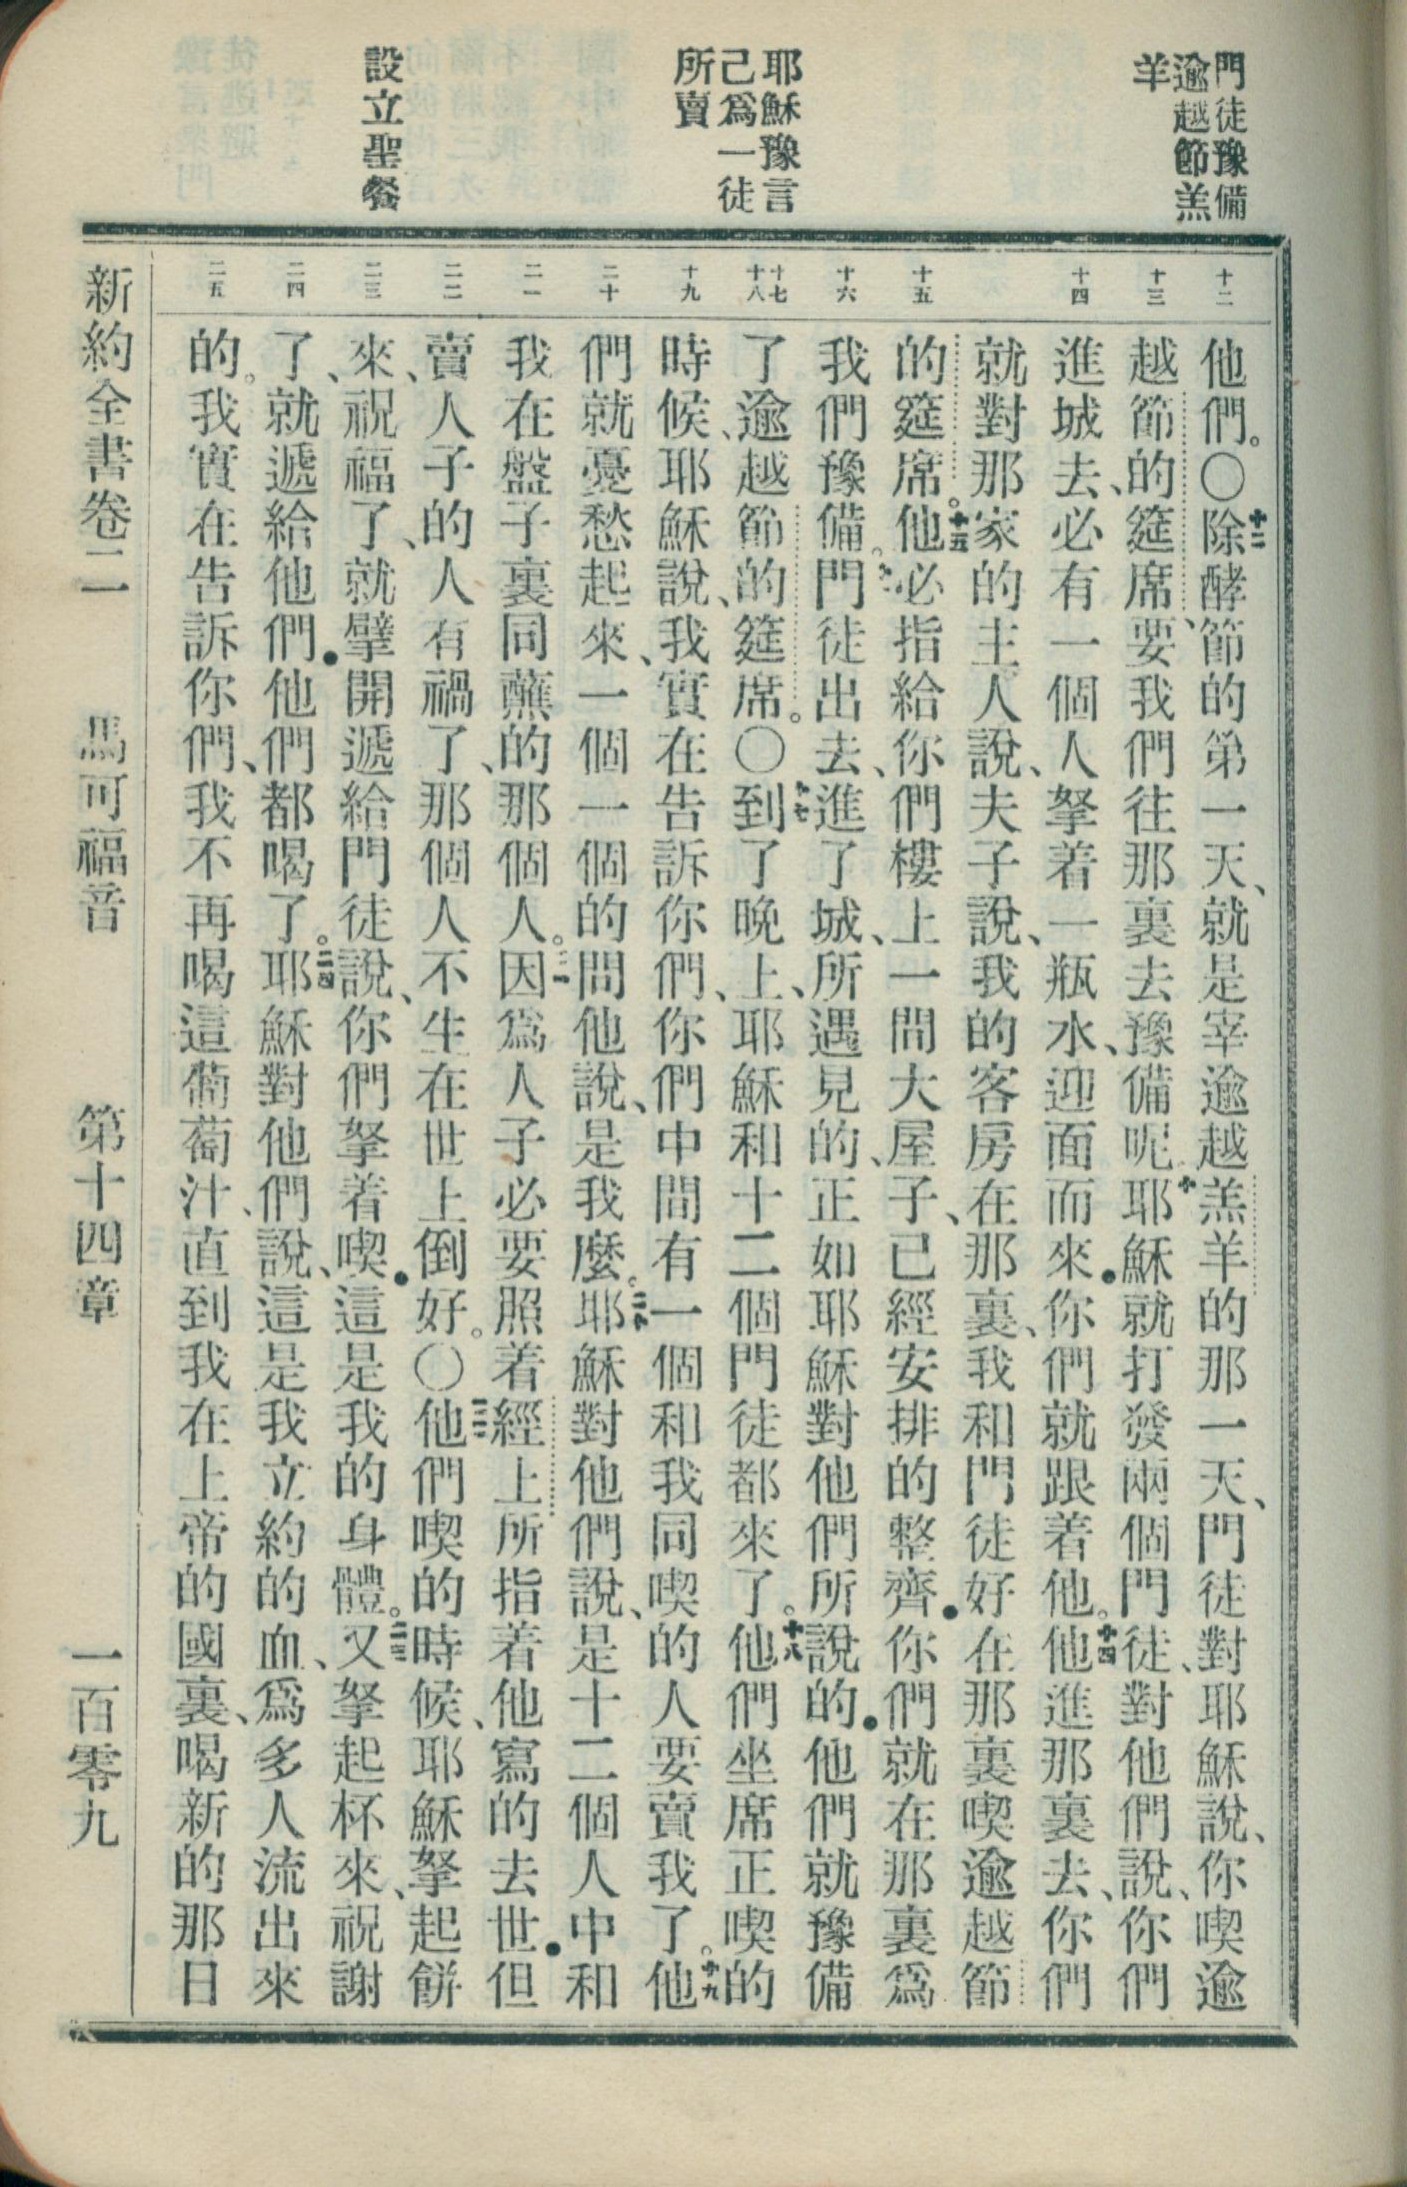 門徒豫備
逾越節羔
羊
耶穌豫言
己爲一徒
所賣
設立聖餐
十二
十三
十四
十五
十六
十七
十八
十九
二十
二一
二二
二三
二四
二五
他們。〇十二除酵節的第一天、就是宰逾越羔羊的那一天、門徒對耶穌說、你喫逾
越節的筵席、要我們往那裏去豫備呢。十三耶穌就打發兩個門徒、對他們說、你們
進城去、必有一個人拏着一瓶水、迎面而來●你們就跟着他。十四他進那裏去、你們
就對那家的主人說、夫子說、我的客房在那裏、我和門徒好在那裏喫逾越節
的筵席。十五他必指給你們樓上一間大屋子、已經安排的整齊●你們就在那裏爲
我們豫備。十六門徒出去、進了城、所遇見的、正如耶穌對他們所說的●他們就豫備
了逾越節的筵席。〇十七到了晚上、耶穌和十二個門徒都來了。十八他們坐席正喫的
時候、耶穌說、我實在告訴你們、你們中間有一個和我同喫的人要賣我了。十九他
們就憂愁起來、一個一個的問他說、是我麼。二十耶穌對他們說、是十二個人中和
我在盤子裏同蘸的那個人。二一因爲人子必要照着經上所指着他寫的去世●但
賣人子的人有禍了、那個人不生在世上倒好。〇二二他們喫的時候、耶穌拏起餅
來、祝福了、就擘開遞給門徒說、你們拏着喫●這是我的身體。二三又拏起杯來、祝謝
了、就遞給他們●他們都喝了。二四耶穌對他們說、這是我立約的血、爲多人流出來
的。我實在告訴你們、我不再喝這葡萄汁、直到我在上帝的國裏、喝新的那日
新約全書卷二　馬可福音　第十四章　一百零九